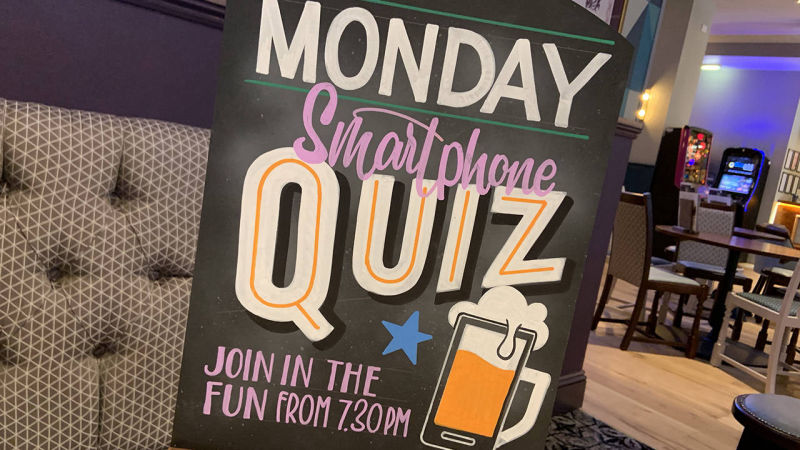 MONDAY
Smartphone
QUIZ
JOIN IN THE
FUN FROM 7.30PM